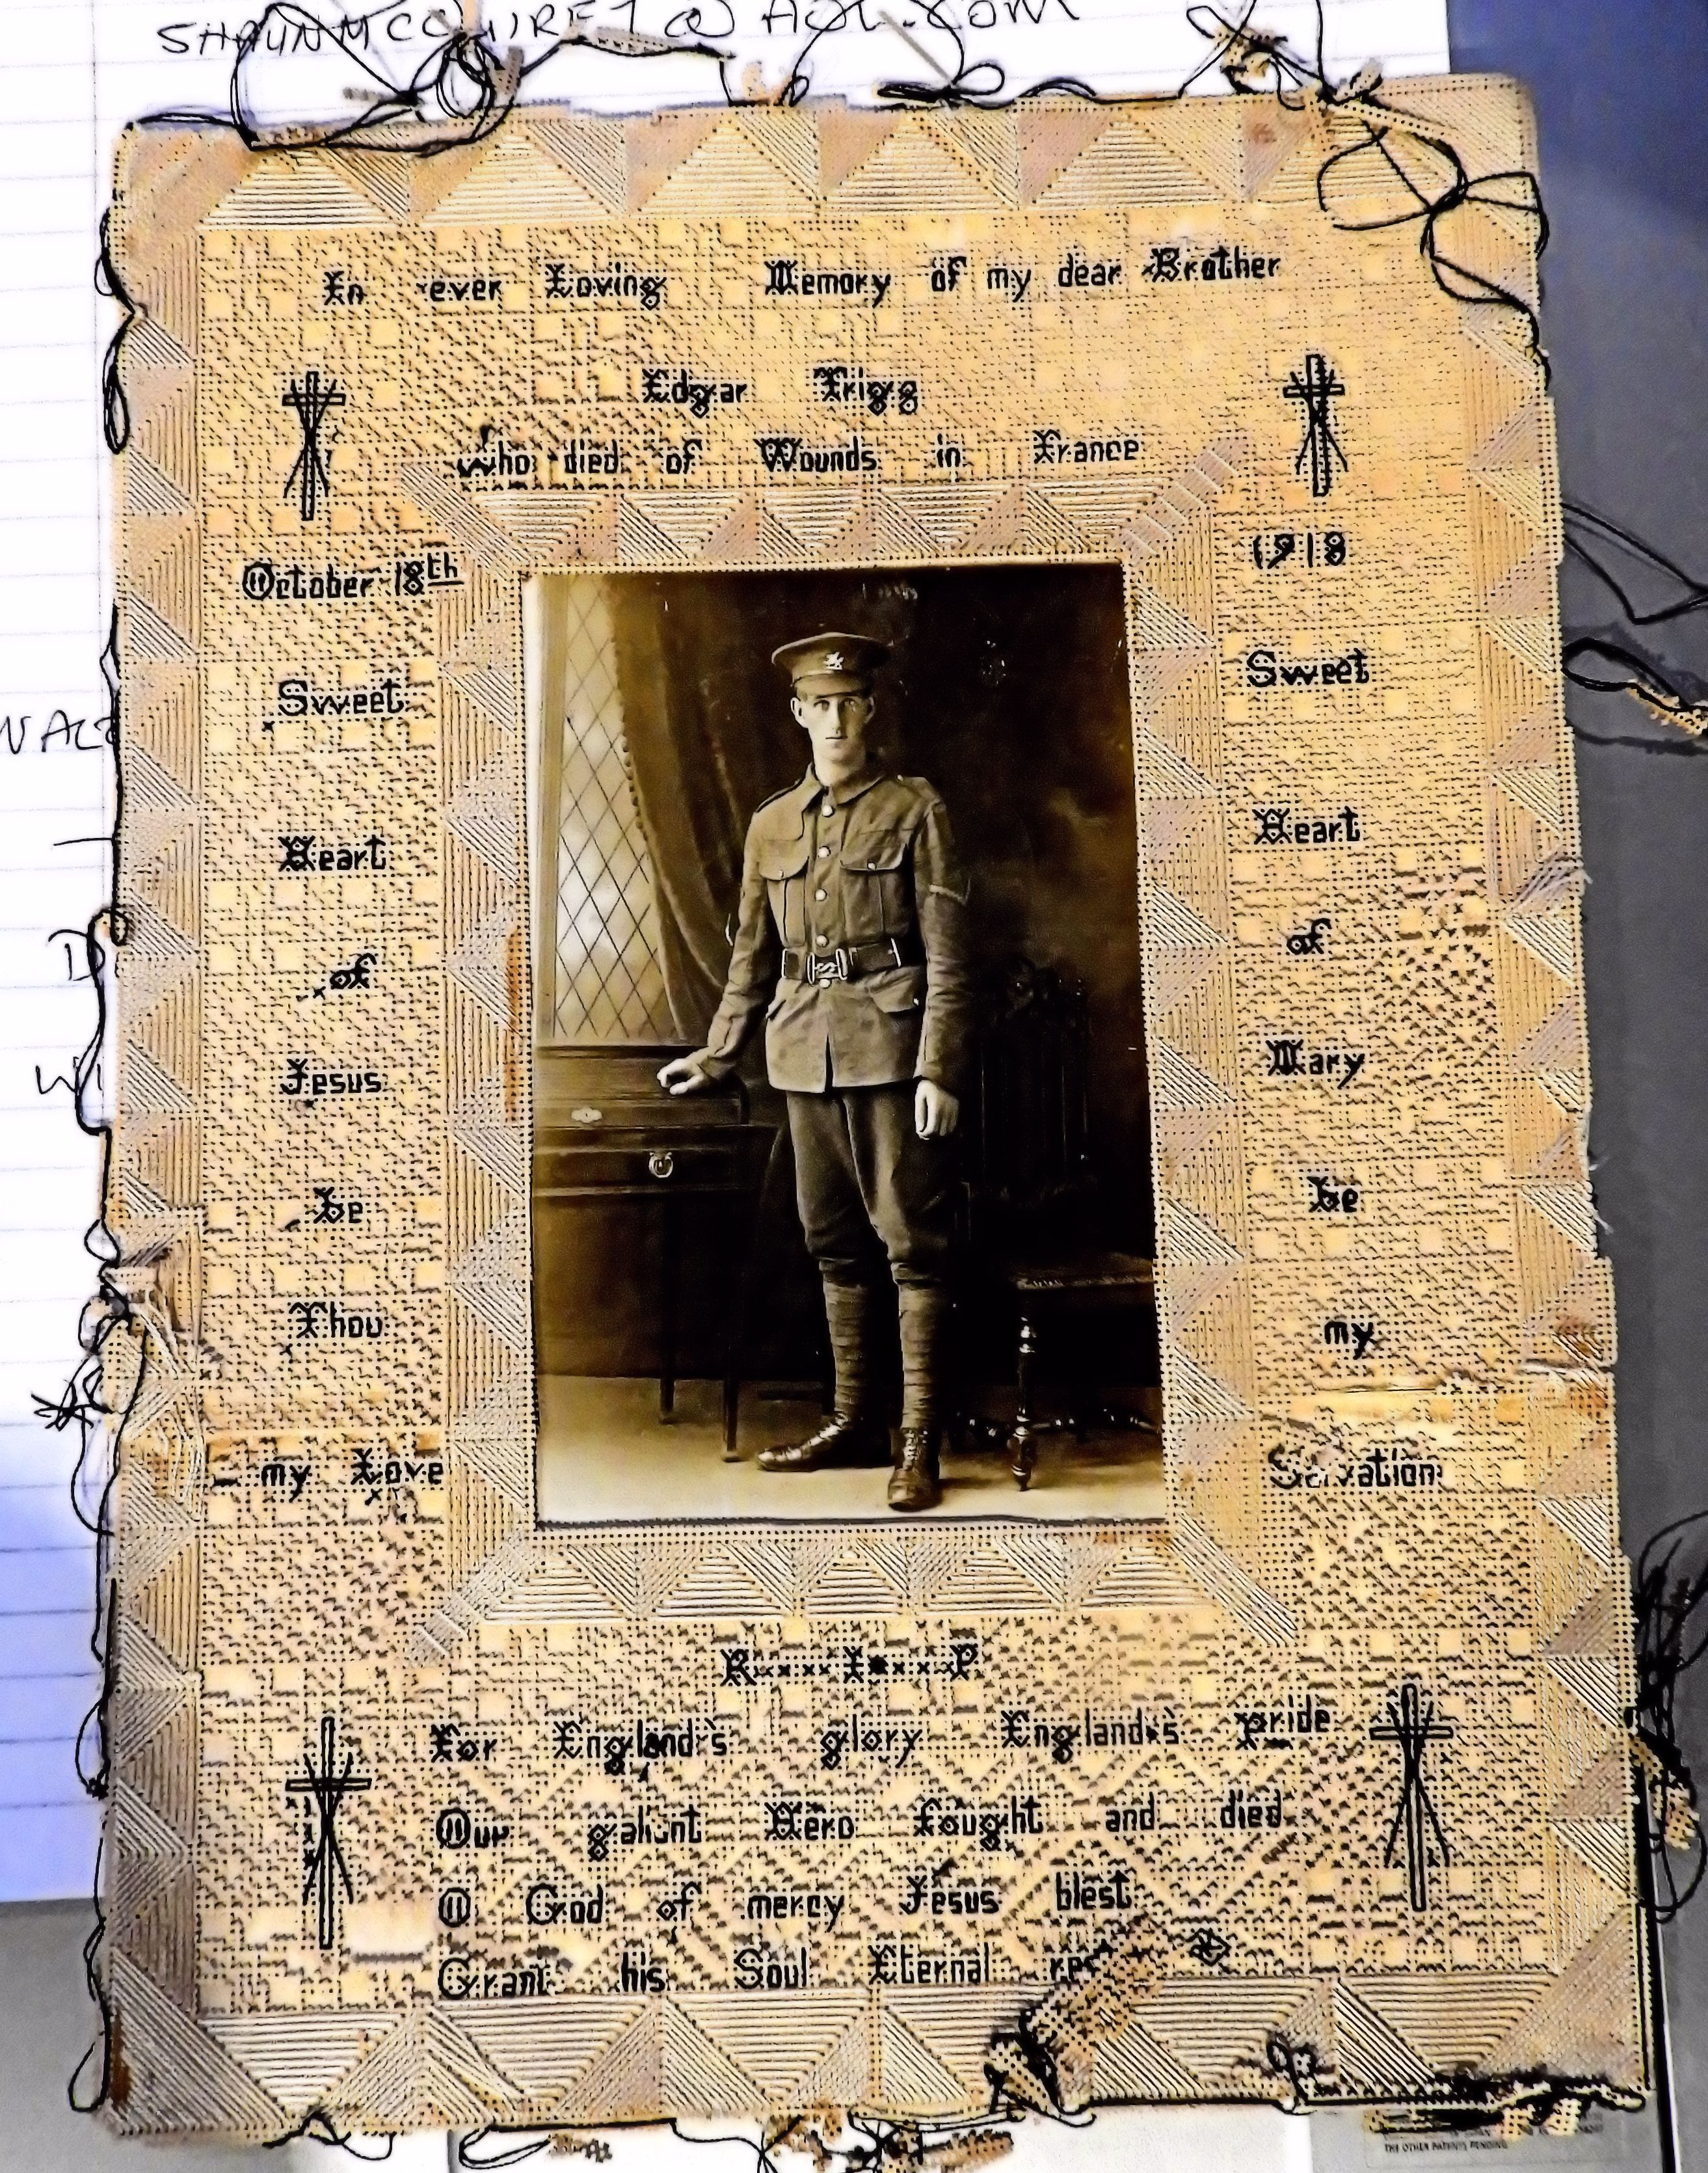 SHAUNMCGUIRE7@AOL.COM
In ever Loving Memory of my dear Brother
Edgar Trigg
who died of Wounds in France
October 18th 1918
Sweet
Heart
of
Jesus
be
Thou
my Love
Sweet
Heart
of
Mary
be
my
Salvation
R I P
For England's glory England's pride
Our gallant Hero fought and died
O God of mercy Jesus blest
Grant his Soul Eternal
THE OTHER PATENTS PENDING